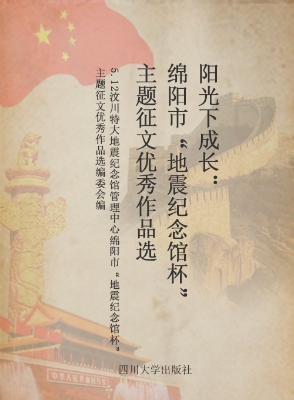 阳光下成长：
绵阳市“地震纪念馆杯”
主题征文优秀作品选
5.12汶川特大地震纪念馆管理中心绵阳市“地震纪念馆杯”
主题征文优秀作品选编委会编
四川大学出版社